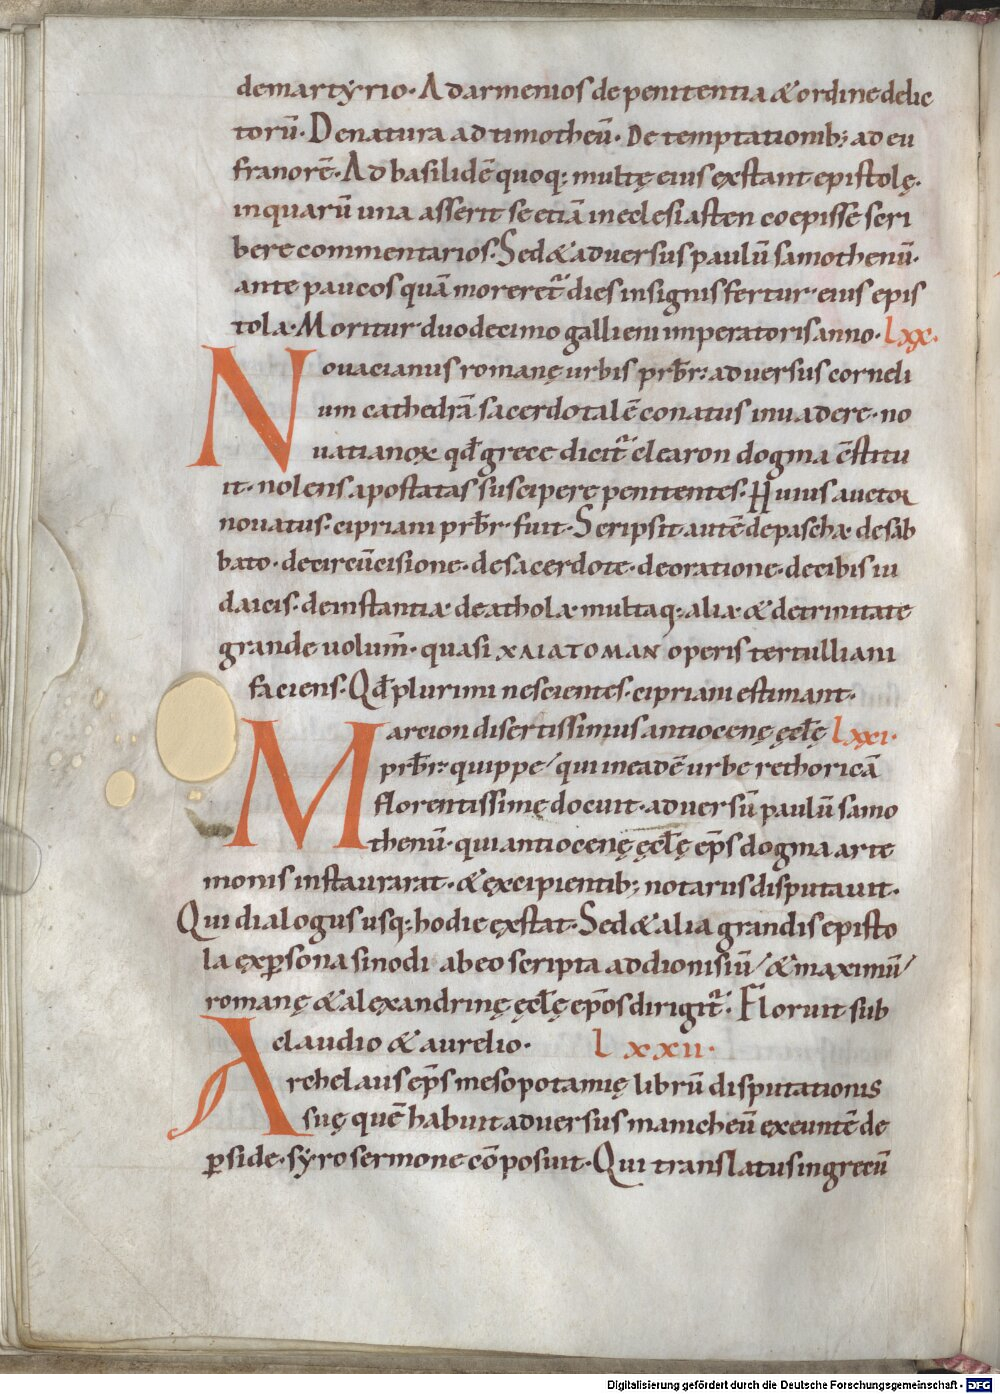 demartyrio. Adarmenios depenitentia & ordine delic
torū. Denatura adtimotheū. De temptationib; ad eu
franorē. Ad basilidē quoq; multę eius exstant epistolę.
inquarū una asserit se etiā ineclesiasten coepisse scri
bere commentarios. Sed & adversus paulū samothenū.
ante paucos quā moreret̄ dies insignis fertur eius epis
tola. Moritur duodecimo gallieni imperatoris anno. lxx.
Nouacianus romanę urbis prb̄r. adversus corneli
um cathedrā sacerdotalē conatus invadere. no
uatianox qđ grece dicit̄ clearon dogma c̄stitu
it. nolens apostatas suscipere penitentes. Huius auctor
nouatus. cipriani prb̄r. fuit. Scripsit autē depascha desab
bato. decircūcisione. desacerdote. deoratione. decibis iu
daicis. deinstantia de athola multaq; alia & detrinitate
grande uolum̄. quasi ΧΛΙΑΤΟΜΑΝ operis tertulliani
faciens. Qđ plurimi nescientes. cipriani estimant.
Marcion disertissimus antiocenę ęcł̄ę lxxi.
prb̄r. quippe/ qui ineadē urbe rethoricā
florentissime docuit. adversū paulū samo
thenū. qui antiocenę ęcł̄ę ep̄s dogma arte
monis instaurarat. & excipientib; notariis disputavit.
Qui dialogus usq; hodie exstat. Sed & alia grandis episto
la ex ꝑsona sinodi ab eo scripta ad dionisiū/ & maximū/
romanę & alexandrinę ęcł̄ę ep̄os dirigit̄. Floruit sub
claudio & aurelio. lxxii.
Archelaus ep̄s mesopotamię librū disputationis
suę quē habuit adversus manicheū exeuntē de
ꝑside. syro sermone cōposuit. Qui translatus in grecū
Digitalisierung gefördert durch die Deutsche Forschungsgemeinschaft - DFG